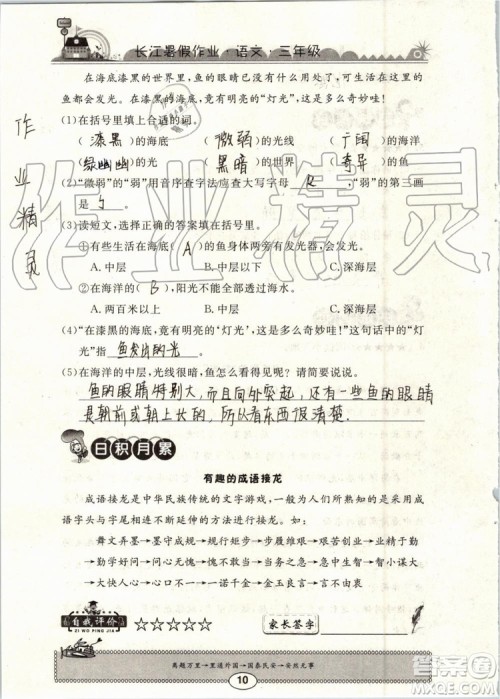 长江暑假作业·语文·三年级
在海底漆黑的世界里，鱼的眼睛已没有什么用处，可在这里的
鱼都会发光。在漆黑的海底，竟有明亮的“灯光”，这是多么奇妙哇！
(1)在括号里填上合适的词。
（漆黑）的海底 （微弱）的光线 （广阔）的海洋
（绿幽幽）的光 （黑暗）的世界 （奇异）的鱼
(2)“微弱”的“弱”用音序查字法应查大写字母 R ，“弱”的第三画
是 ㄣ 。
(3)读短文，选择正确的答案填在括号里。
①有些生活在海底（A）的鱼身体两旁有发光器，会发光。
A.中层 B.中下层 C.深海层
②在海洋的（B），阳光不能全部透过海水。
A.两百米以上 B.中层 C.深海层
(4)“在漆黑的海底，竟有明亮的‘灯光’，这是多么奇妙哇！”这句话中的“灯
光”指 鱼发出的光 。
(5)在海洋的中层，眼睛，鱼怎么看得见呢？请简要说说。
鱼的眼睛特别大，而且向外突起，还有一些鱼的眼睛
是朝前或朝上长的，所以看东西很清楚。
日积月累
有趣的成语接龙
成语接龙是中华民族传统的文字游戏，一般为人们所熟知的是采用成
语字头与字尾相连不断延伸的方法进行接龙。如：
舞文弄墨→墨守成规→规行矩步→步履维艰→艰苦创业→业精于勤
→勤学好问→问心无愧→愧不敢当→当务之急→急中生智→智小谋大
→大快人心→心口不一→一诺千金→金玉良言→言不由衷
自我评价
ZI WO PING JIA
☆☆☆☆☆
家长签字
鹏程万里→里通外国→国泰民安→安然无事
10
作
业
精
灵
作业精灵